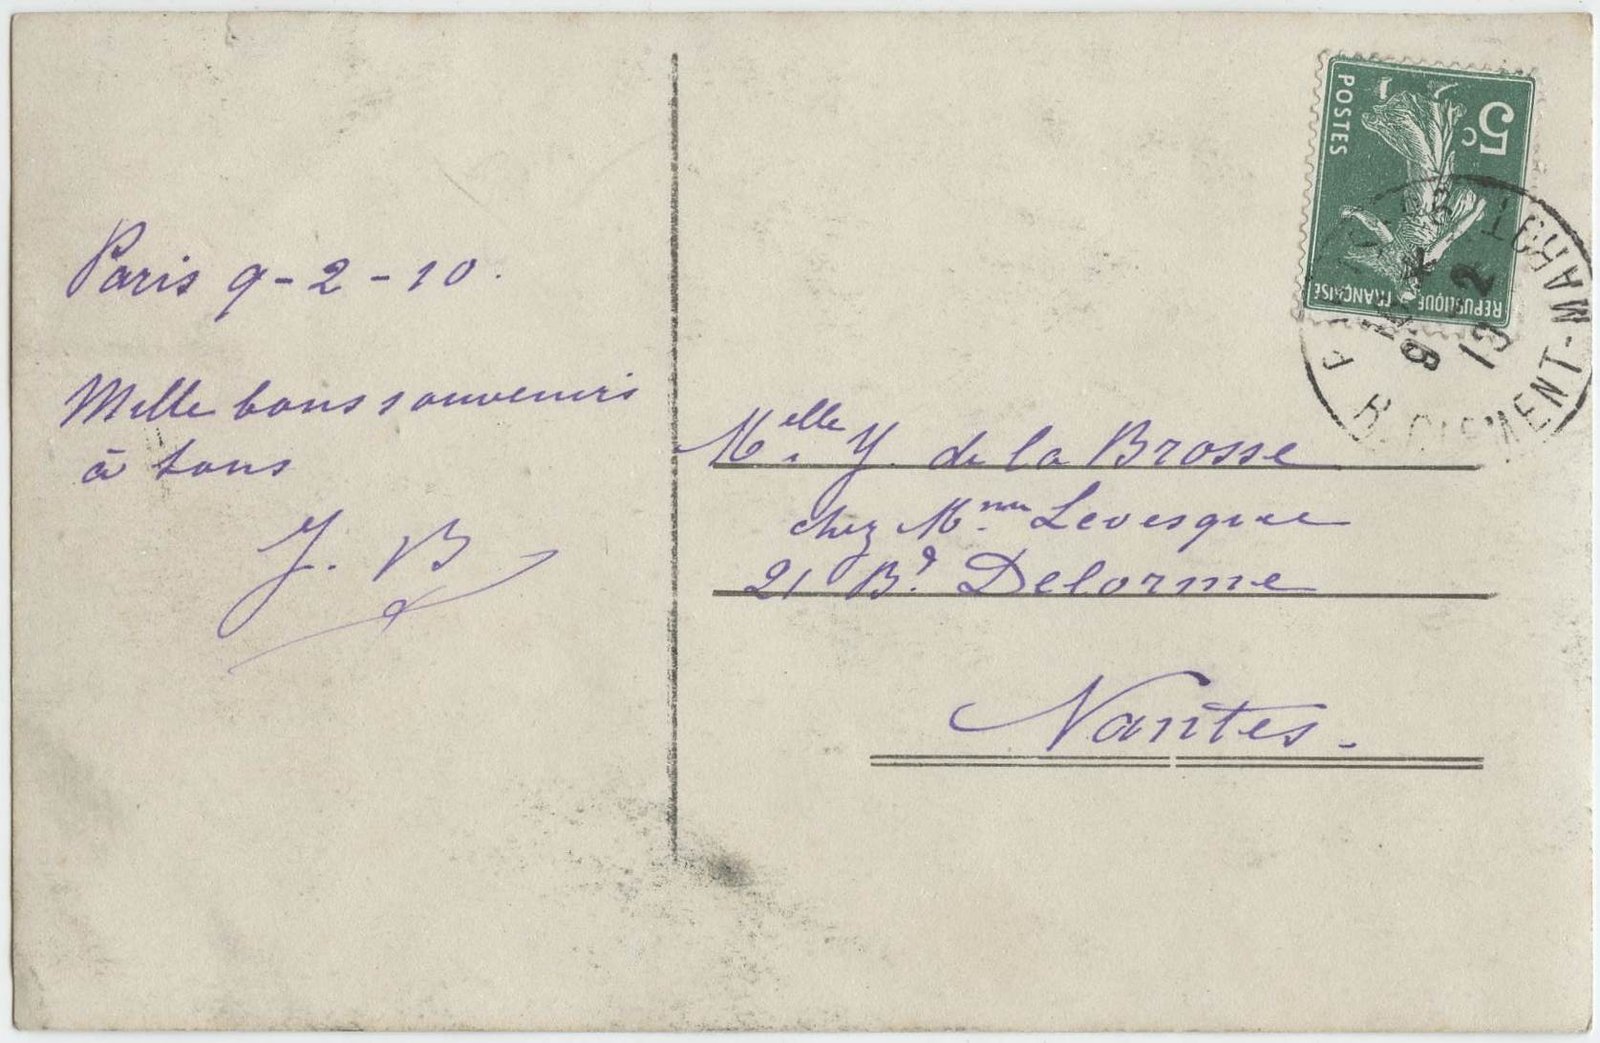 Paris 9-2-10.
Mille bons souvenirs
à tous
J. B
5c
POSTES
REPUBLIQUE FRANÇAISE
PARIS
R. CLEMENT-MAROT
Melle Y. de la Brosse
chez Mme Levesque
21 Bd. Delorme
Nantes.